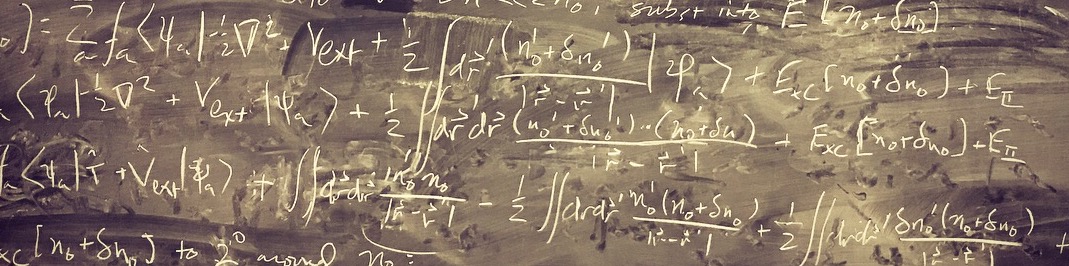 subst into E [n₀+δn₀]
]= Σₐ fₐ ⟨ψₐ|-½∇² + Vext + ½ ∫dr⃗' (n₀'+δn₀')/|r⃗-r⃗'| |ψₐ⟩ + Exc[n₀+δn₀] + E_II
⟨ψₐ|-½∇² + Vext|ψₐ⟩ + ½ ∫∫dr⃗'dr⃗ (n₀'+δn₀')·(n₀+δn)/|r⃗-r⃗'| + Exc[n₀+δn₀]+E_II
⟨ψₐ|T̂+V̂ext|ψₐ⟩ + ∫∫dr⃗dr⃗' n₀'n₀/|r⃗-r⃗'| - ½ ∫∫dr⃗dr⃗' n₀'(n₀+δn₀)/|r⃗-r⃗'| + ½ ∫∫drdr' δn₀'(n₀+δn₀)/|r⃗-r⃗'| +
xc [n₀+δn₀] to 2° around n₀: